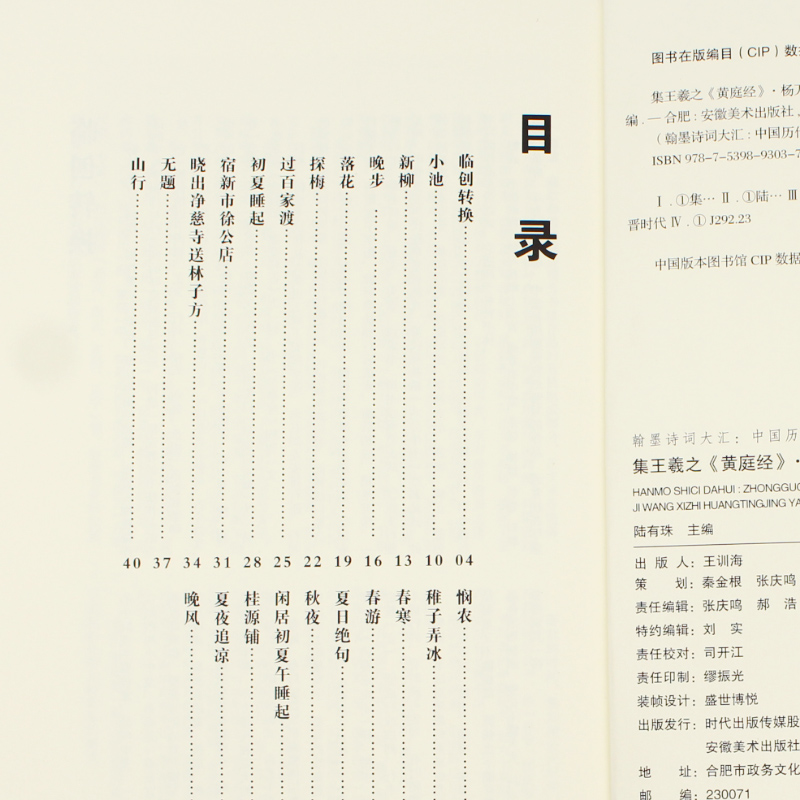 目录
临创转换 04
小池 10
新柳 13
晚步 16
落花 19
探梅 22
过百家渡 25
初夏睡起 28
宿新市徐公店 31
晓出净慈寺送林子方 34
无题 37
山行 40
悯农
稚子弄冰
春寒
春游
夏日绝句
秋夜
闲居初夏午睡起
桂源铺
夏夜追凉
晚风
图书在版编目(CIP)数
集王羲之《黄庭经》·杨万
编. — 合肥:安徽美术出版社,
(翰墨诗词大汇:中国历
ISBN 978-7-5398-9303-7
Ⅰ.①集… Ⅱ.①陆… Ⅲ
晋时代 Ⅳ.①J292.23
中国版本图书馆CIP数据
翰墨诗词大汇:中国历
集王羲之《黄庭经》·
HANMO SHICI DAHUI:ZHONGGUO
JI WANG XIZHI HUANGTINGJING YA
陆有珠 主编
出版人:王训海
策 划:秦金根 张庆鸣
责任编辑:张庆鸣 郝 浩
特约编辑:刘 实
责任校对:司开江
责任印制:缪振光
装帧设计:盛世博悦
出版发行:时代出版传媒股
安徽美术出版社
地 址:合肥市政务文化
邮 编:230071